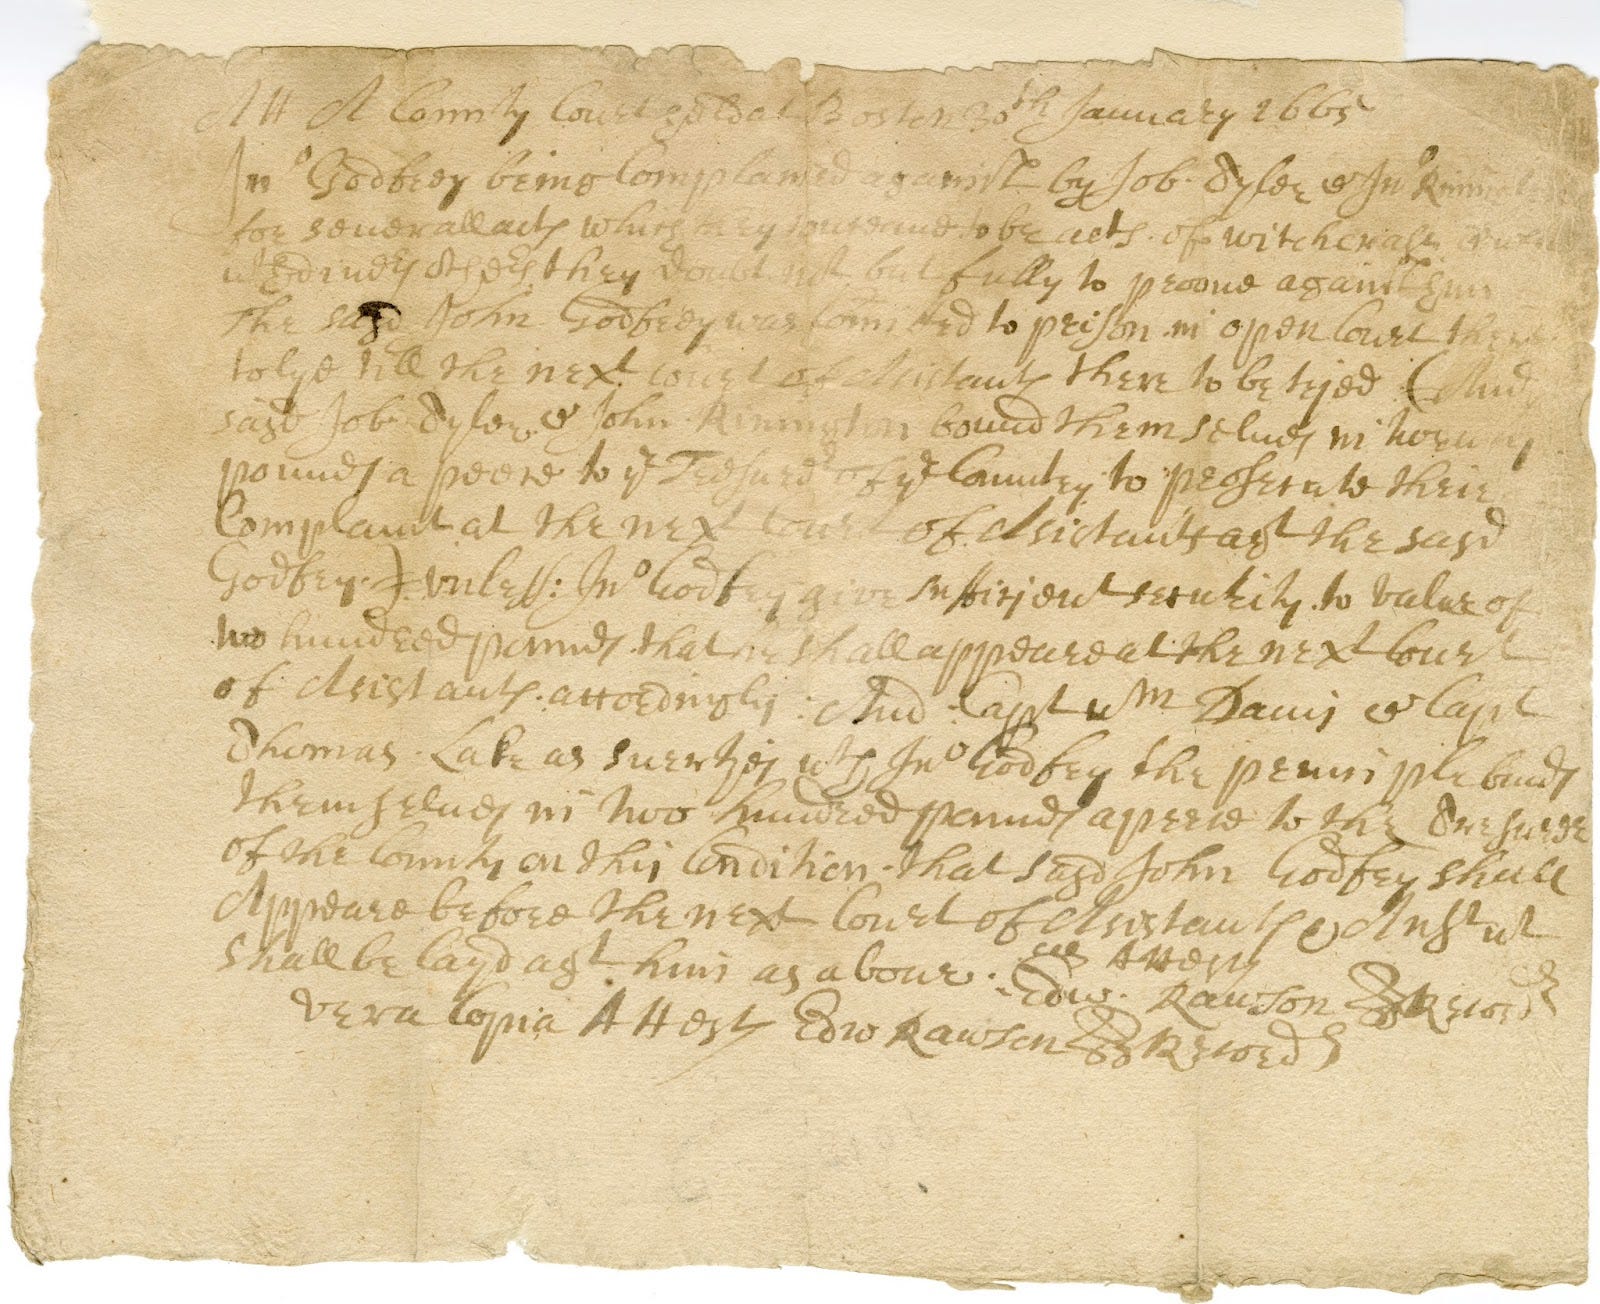 Att A County Court held at Boston 30th January 1665
Jno Godfrey being Complained against by Job Tyler & Jno Rimin
for seuerall acts which they conceaue to be acts of witchcraft
they doubt not but fully to prooue against him
the sajd John Godfrey was comitted to prison in open Court there
to lye till the next Court of Asistants there to be trjed (And
sajd Job Tyler & John Rimington bound themselues in
pounds a peece to ye Tresurer of ye Country to prosecute their
Complaint at the next Court of Asistants agt the sajd
Godfrey) vnless: Jno Godfrey give suffitjent security to value of
two hundred pounds that he shall appeare at the next Court
of Asistants accordingly: And Capt Wm Dauis & Capt
Thomas Lake as suertjes wth Jno Godfrey the principle binds
themselues in two hundred pounds a peece to the Tresurer
of the County on this Condition that sajd John Godfrey shall
Appeare before the next Court of Asistants & Ansr wt
shall be layd agt him as aboue. as Attests
Edw. Rawson Recordr
vera Copia Attests Edw Rawson Recordr